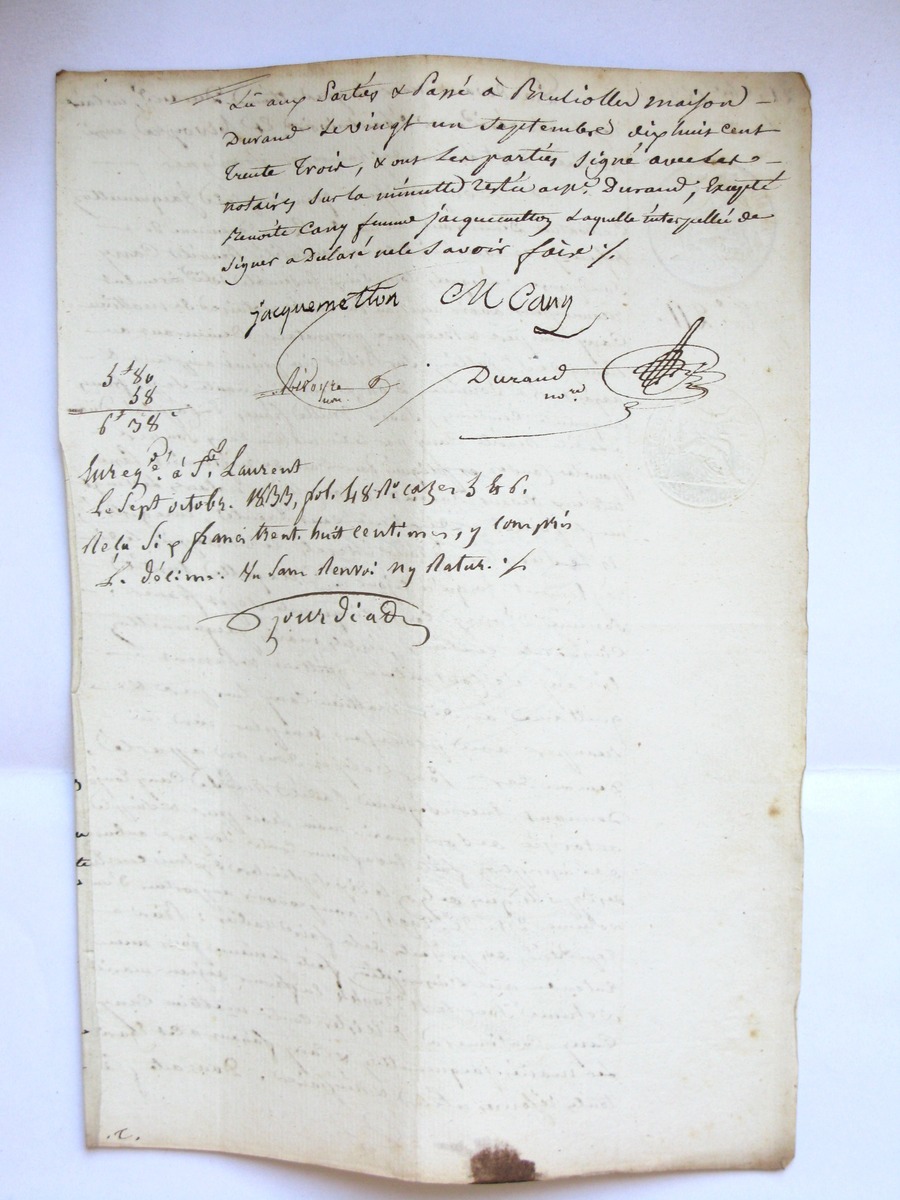 Lû aux Parties & Passé à Brulioller maison
Durand le vingt un septembre dix huit cent
trente trois, & ont les parties signé avec les
notaires sur la minutte restée à Mr. Durand, Excepté
Benoite Cany femme jacquemetton laquelle interpellée de
signer a Déclaré ne le savoir faire ./.
jacquemetton M Cany
Durand
nore.
5f 80
58
6f 38c
Enregé. à St. Laurent
le Sept octobr. 1833, fol. 48 Ro. cazes 5 & 6.
Reçu Six francs trent. huit centimes, y compris
le décime. Un Sans Renvoi ny Ratur. ./.
Jourdiad